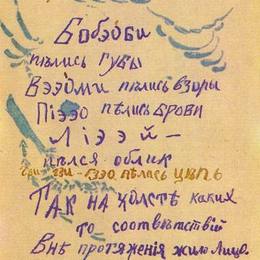 Бобэоби
пѣлись губы
Вээоми пѣлись взоры
Піээо пѣлись брови
Ліэээй –
пѣлся облик
Гзи-гзи-гзэо пѣлась цѣпь
Так на холстѣ каких
то соотвѣтствій
Внѣ протяженія жило Лицо.